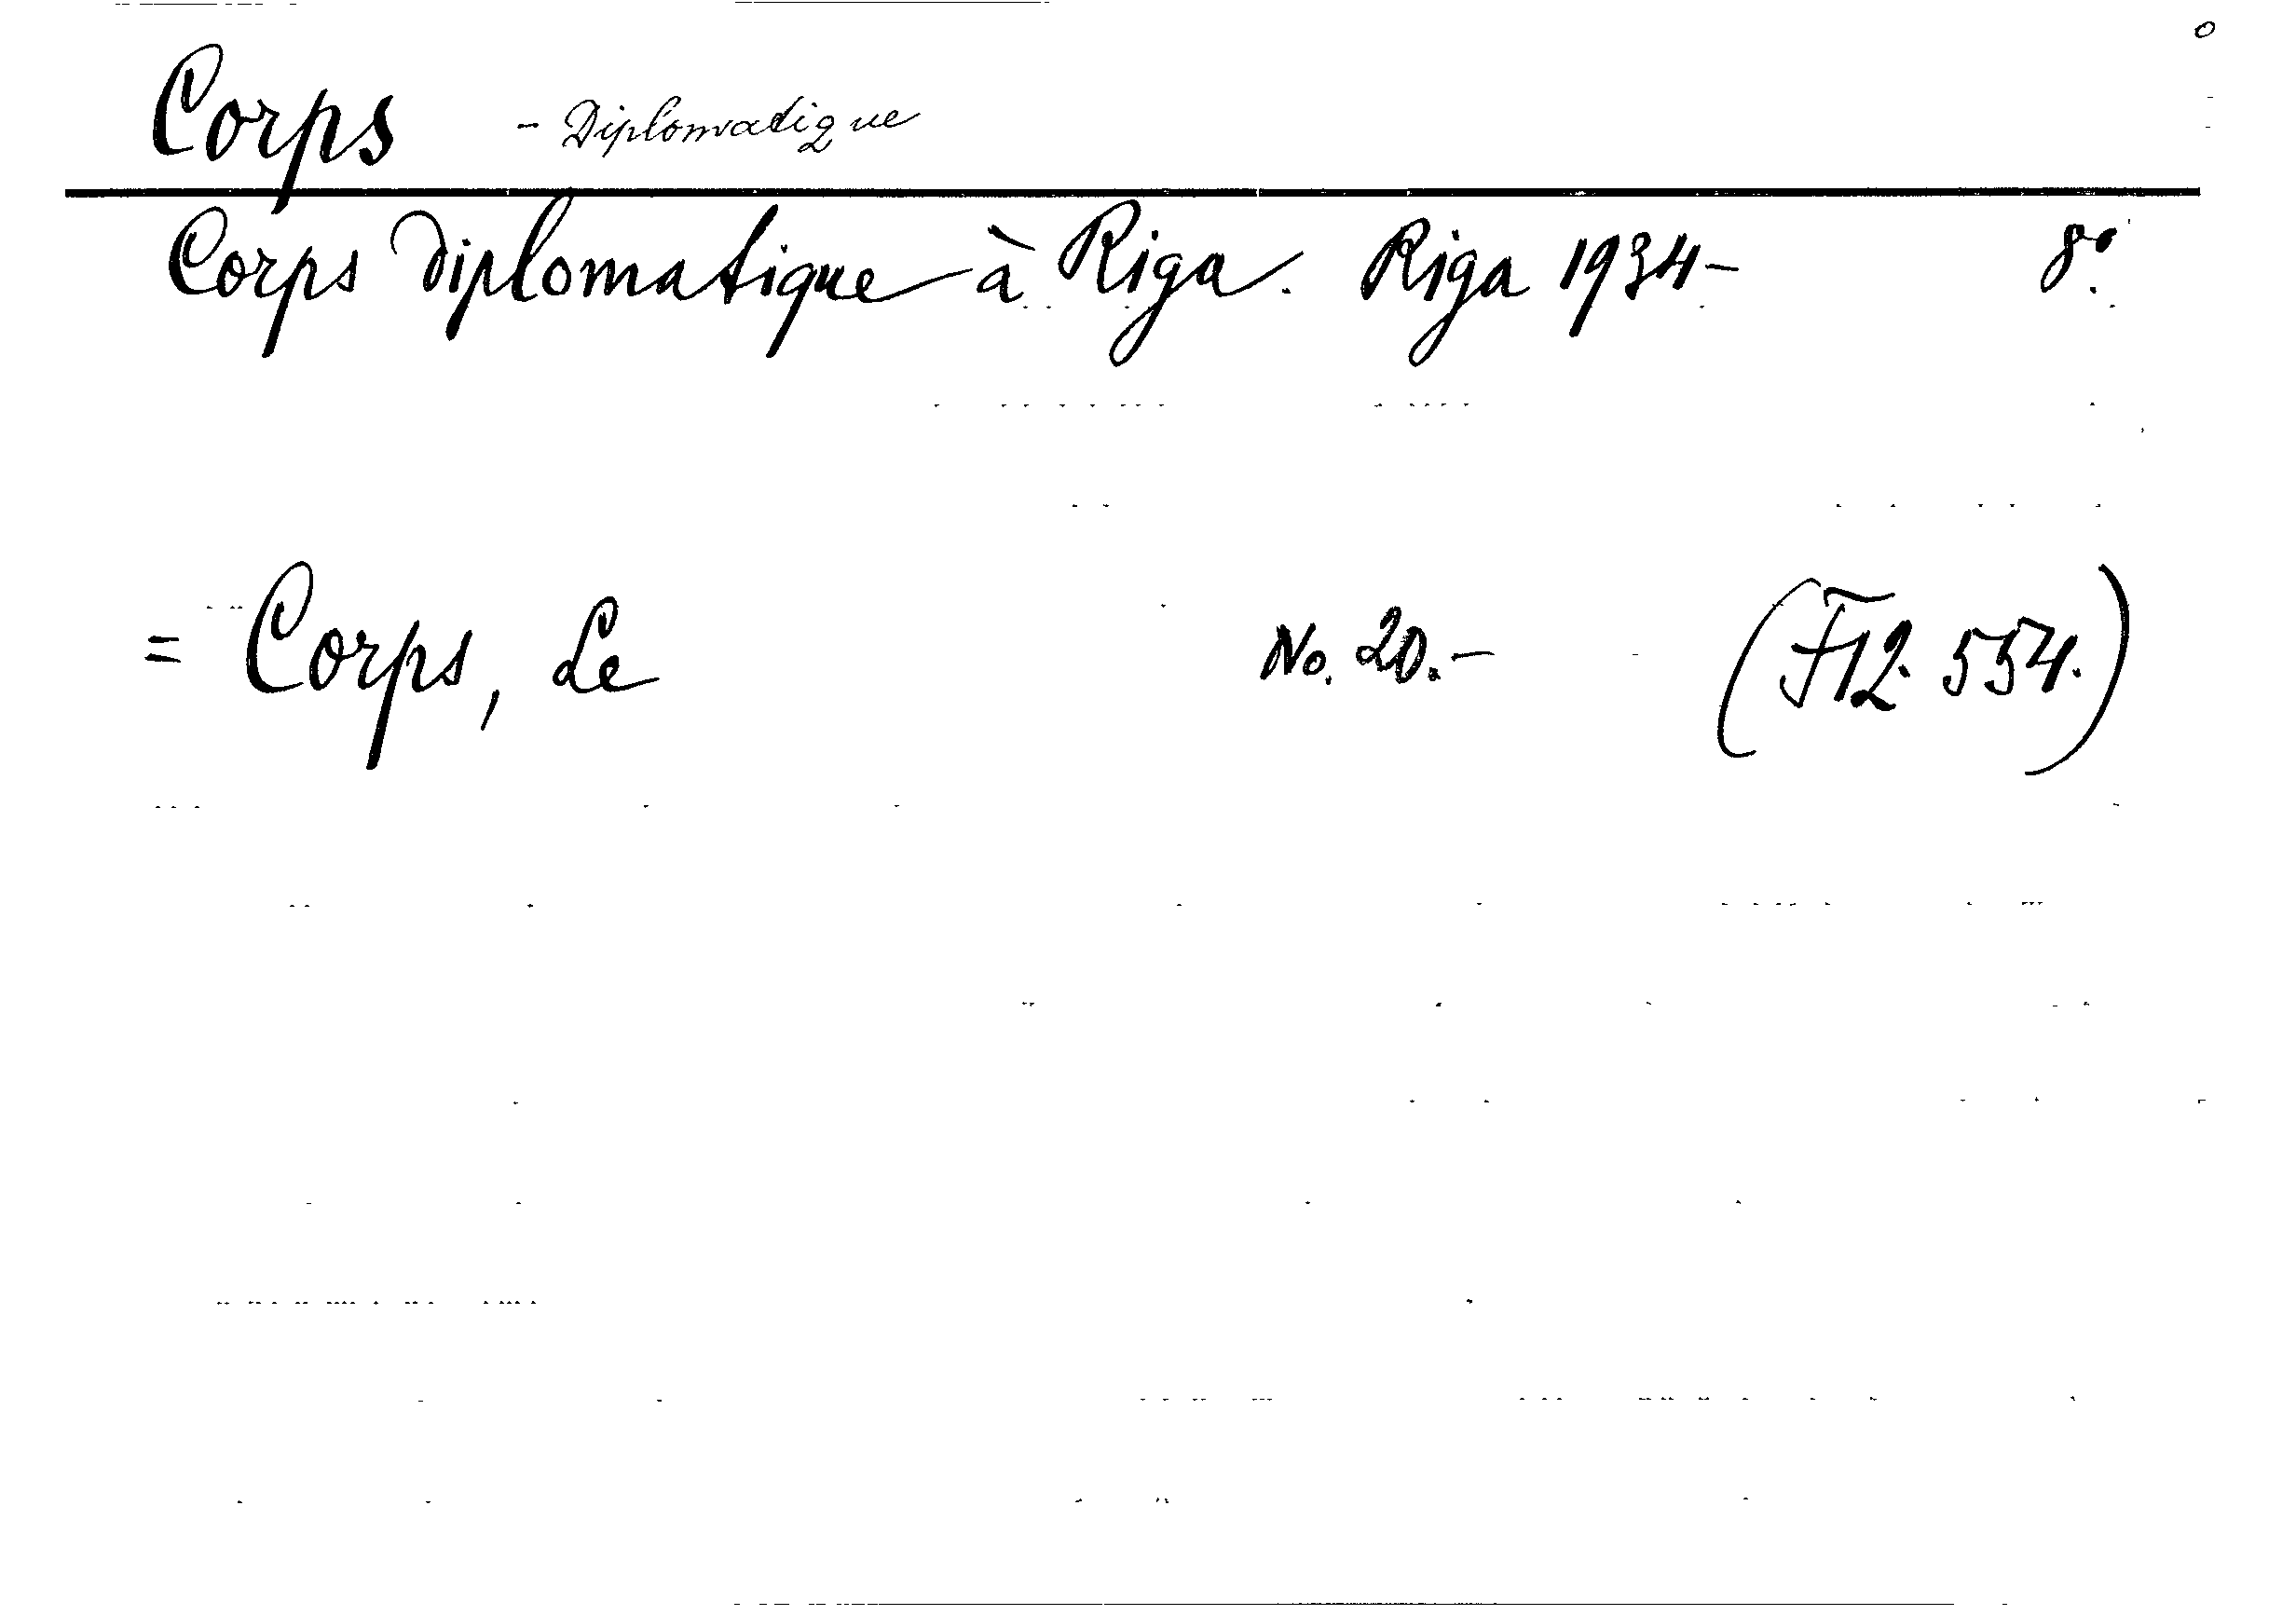 Corps - Diplomatique
Corps diplomatique à Riga. Riga 1934- 8º.
= Corps, Le No. 20.- (F12. 554.)